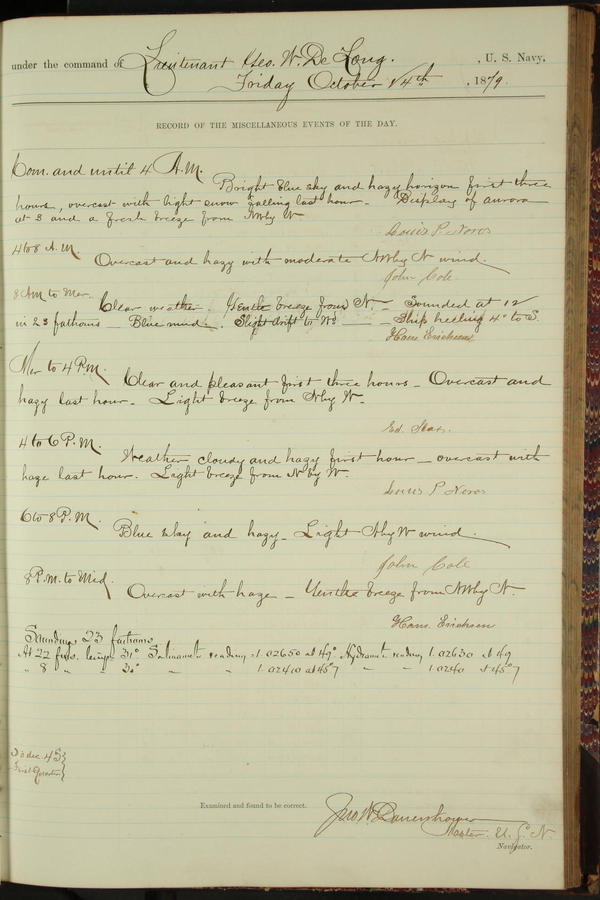 under the command of Lieutenant Geo. W. De Long. , U. S. Navy,
Friday October 24th , 1879.
RECORD OF THE MISCELLANEOUS EVENTS OF THE DAY.
Com. and until 4 A.M.
Bright blue sky and hazy horizon first three
hours, overcast with light snow falling last hour. Display of aurora
at 3 and a fresh breeze from NW by N
Louis P. Noros
4 to 8 A.M.
Overcast and hazy with moderate NW by N wind.
John Cole
8 AM to Mer.
Clear weather. Gentle breeze from N. Sounded at 12
in 23 fathoms Blue mud. Slight drift to Ship heeling 4° to S.
Hans Erichsen
Mer to 4 P.M.
Clear and pleasant first three hours Overcast and
hazy last hour. Light breeze from N by W.
Ed. Star.
4 to 6 P.M.
Weather cloudy and hazy first hour overcast with
haze last hour. Light breeze from N by W.
Louis P Noros
6 to 8 P.M.
Blue sky and hazy. Light N by W wind.
John Cole
8 P.M. to Mid.
Overcast with haze Gentle breeze from NW by N.
Hans Erichsen
Soundings 23 fathoms
At 22 fms. temp. 31° Salinometer reading 1.02650 at 49° Hydrometer reading 1.02630 at 49
" 8 " " 30° 1.02410 at 45°7 1.0240 at 45°7
dec. 4 S
First Quarter
Examined and found to be correct.
Jno W Danenhower
Master. U. S. N.
Navigator.